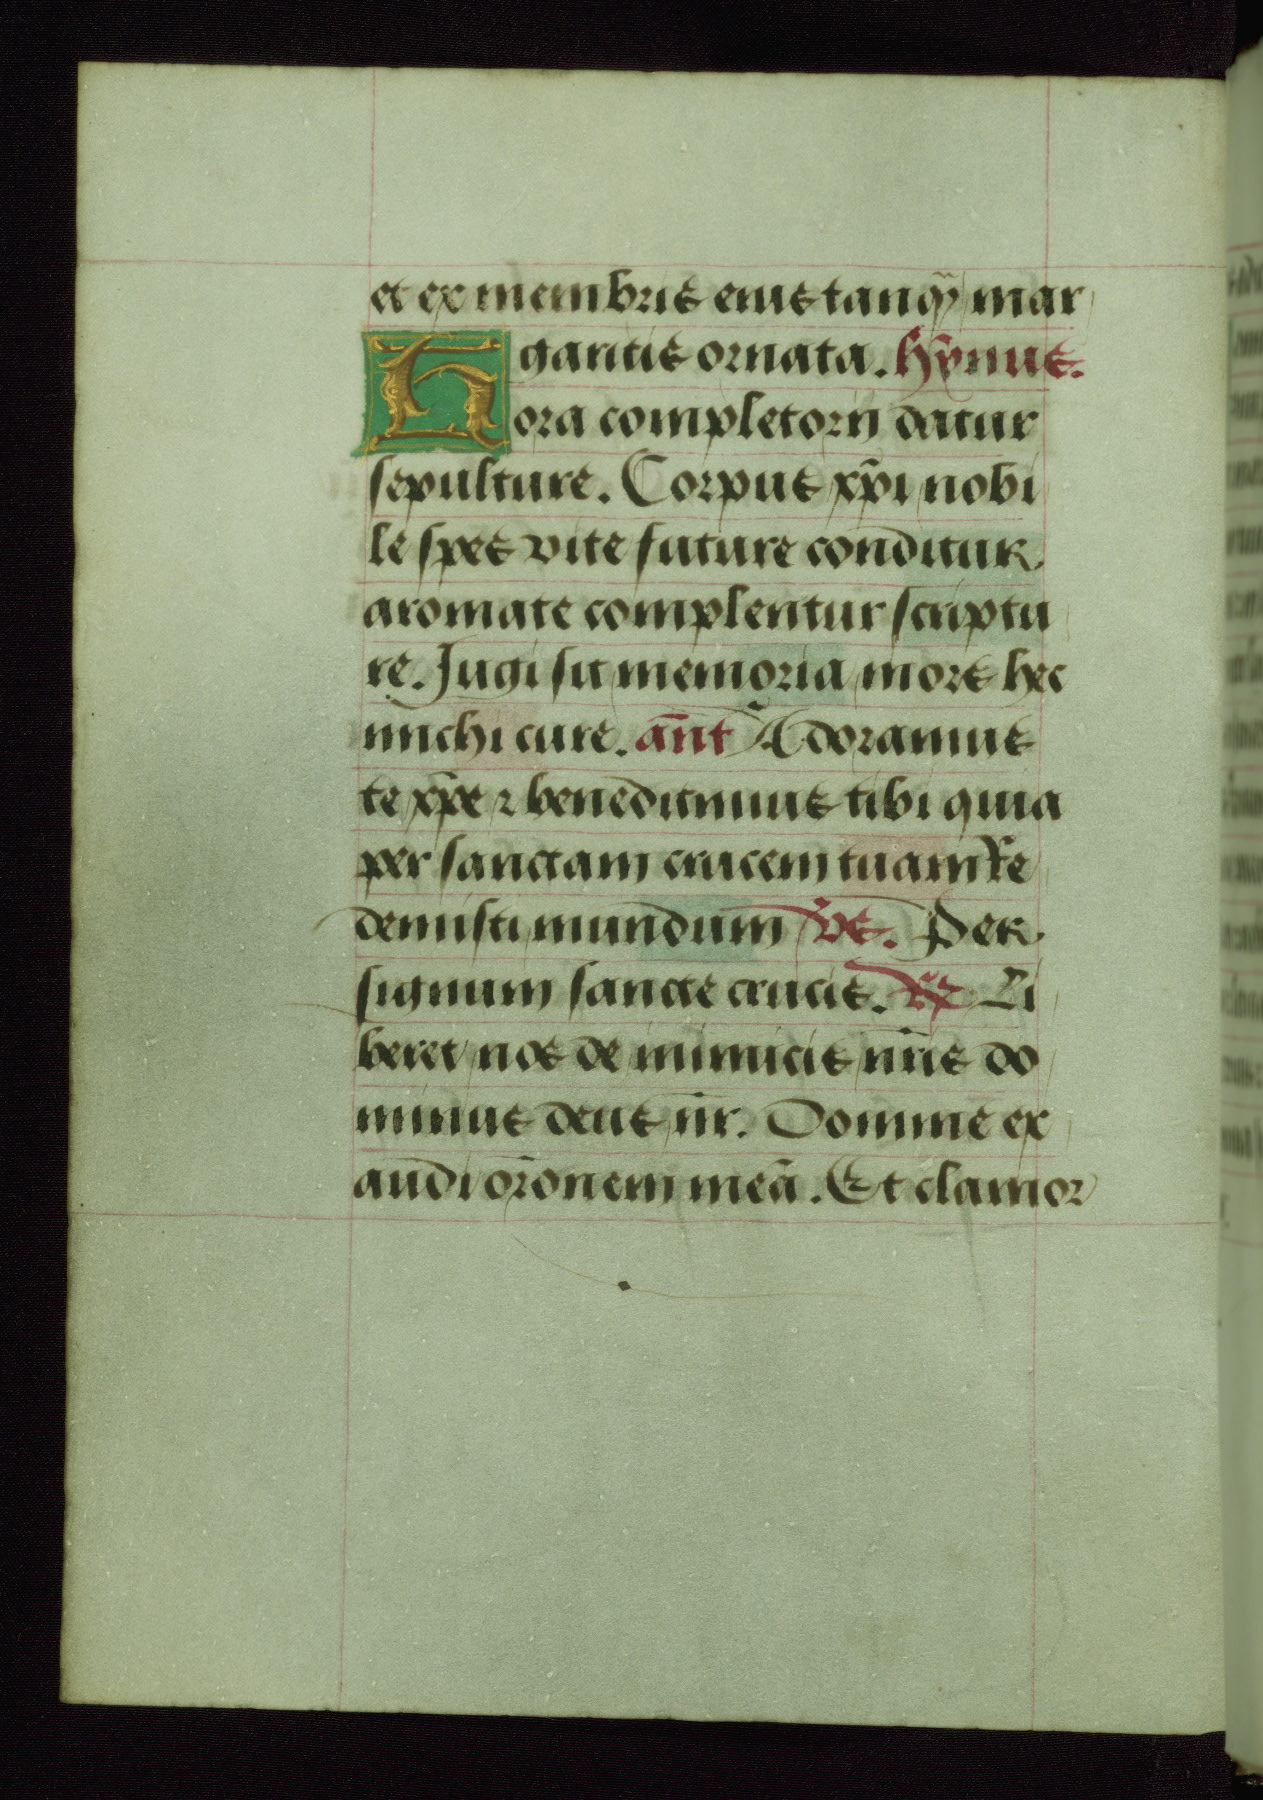 et ex membris eius tanqȝ mar
garitis ornata. Hȳnus.
Hora completorȝ datur
sepulture. Corpus xp̄i nobi
le spes vite future conditur
aromate complentur scriptu
re. Jugi sit memoria mors hec
michi cure. an̄t Adoramus
te xp̄e ⁊ benedicimus tibi quia
per sanctam crucem tuam Re
demisti mundum v̄s. Per
signum sancte crucis. ℟ Li
beret nos de inimicis nr̄is do
minus deus nr̄. Domine ex
audi or̄onem meā. Et clamor